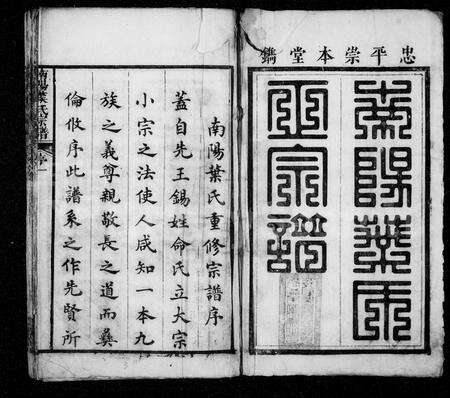 忠平崇本堂鐫
南陽葉氏
宗譜
南陽葉氏重修宗譜序
蓋自先王錫姓命氏立大宗
小宗之法使人咸知一本九
族之義尊親敬長之道而彝
倫攸序此譜系之作先賢所
南陽葉氏宗譜